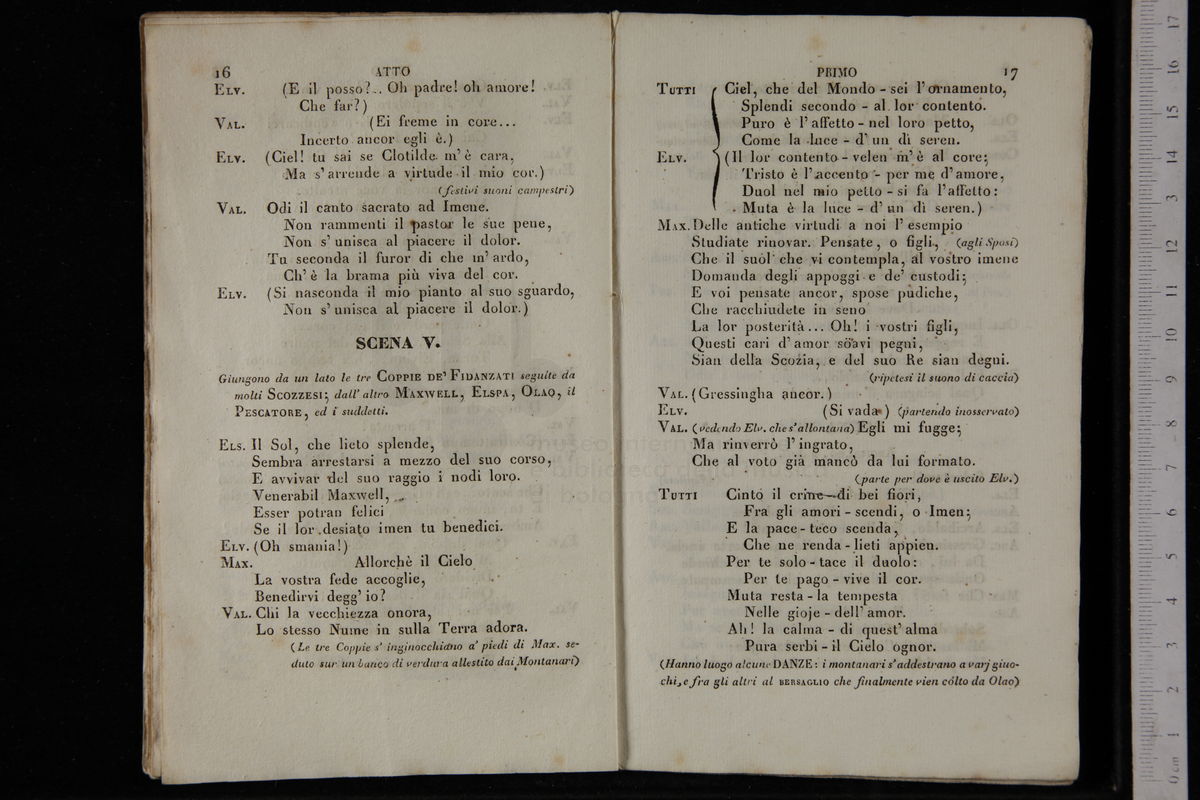 16 ATTO
Elv. (E il posso?... Oh padre! oh amore!
Che far?)
Val. (Ei freme in core...
Incerto ancor egli è.)
Elv. (Ciel! tu sai se Clotilde m'è cara,
Ma s'arrende a virtude il mio cor.)
(festivi suoni campestri)
Val. Odi il canto sacrato ad Imene.
Non rammenti il pastor le sue pene,
Non s'unisca al piacere il dolor.
Tu seconda il furor di che m'ardo,
Ch'è la brama più viva del cor.
Elv. (Si nasconda il mio pianto al suo sguardo,
Non s'unisca al piacere il dolor.)
SCENA V.
Giungono da un lato le tre Coppie de' Fidanzati seguite da
molti Scozzesi; dall'altro Maxwell, Elspa, Olao, il
Pescatore, ed i suddetti.
Els. Il Sol, che lieto splende,
Sembra arrestarsi a mezzo del suo corso,
E avvivar del suo raggio i nodi loro.
Venerabil Maxwell,
Esser potran felici
Se il lor desiato imen tu benedici.
Elv. (Oh smania!)
Max. Allorchè il Cielo
La vostra fede accoglie,
Benedirvi degg'io?
Val. Chi la vecchiezza onora,
Lo stesso Nume in sulla Terra adora.
(Le tre Coppie s'inginocchiano a' piedi di Max. se-
duto sur un banco di verdura allestito dai Montanari)
PRIMO 17
Tutti Ciel, che del Mondo - sei l'ornamento,
Splendi secondo - al lor contento.
Puro è l'affetto - nel loro petto,
Come la luce - d'un dì seren.
Elv. (Il lor contento - velen m'è al core;
Tristo è l'accento - per me d'amore,
Duol nel mio petto - si fa l'affetto:
Muta è la luce - d'un dì seren.)
Max. Delle antiche virtudi a noi l'esempio
Studiate rinovar. Pensate, o figli, (agli Sposi)
Che il suol che vi contempla, al vostro imene
Domanda degli appoggi e de' custodi;
E voi pensate ancor, spose pudiche,
Che racchiudete in seno
La lor posterità... Oh! i vostri figli,
Questi cari d'amor soavi pegni,
Sian della Scozia, e del suo Re sian degni.
(ripetesi il suono di caccia)
Val. (Gressingha ancor.)
Elv. (Si vada.) (partendo inosservato)
Val. (vedendo Elv. che s'allontana) Egli mi fugge;
Ma rinverrò l'ingrato,
Che al voto già mancò da lui formato.
(parte per dove è uscito Elv.)
Tutti Cinto il crine - di bei fiori,
Fra gli amori - scendi, o Imen;
E la pace - teco scenda,
Che ne renda - lieti appien.
Per te solo - tace il duolo:
Per te pago - vive il cor.
Muta resta - la tempesta
Nelle gioje - dell'amor.
Ah! la calma - di quest'alma
Pura serbi - il Cielo ognor.
(Hanno luogo alcune DANZE: i montanari s'addestrano a varj giuo-
chi, e fra gli altri al bersaglio che finalmente vien cólto da Olao)